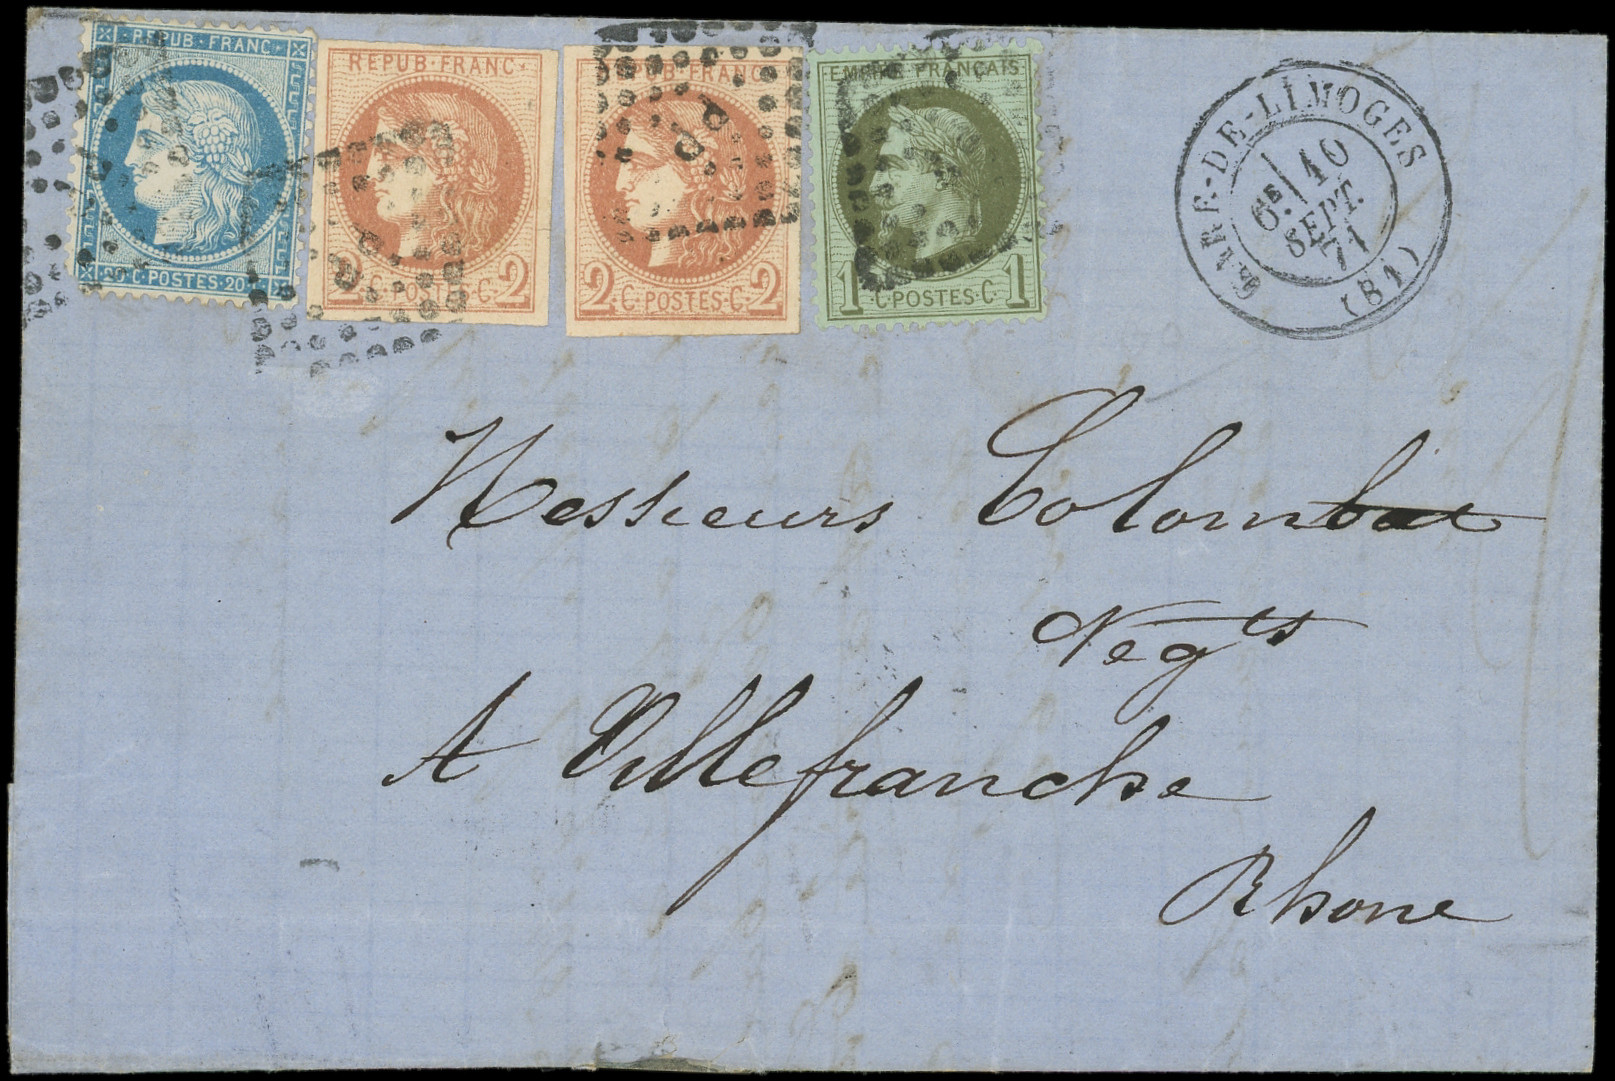 REPUB·FRANC·
20·C·POSTES·20
REPUB·FRANC·
2·C·POSTES·C·2
REPUB·FRANC·
2·C·POSTES·C·2
EMPIRE FRANÇAIS
1·C·POSTES·C·1
GARE-DE-LIMOGES
6E 10
SEPT.
71
(81)
Messieurs Colombat
Négts
A Villefranche
Rhone